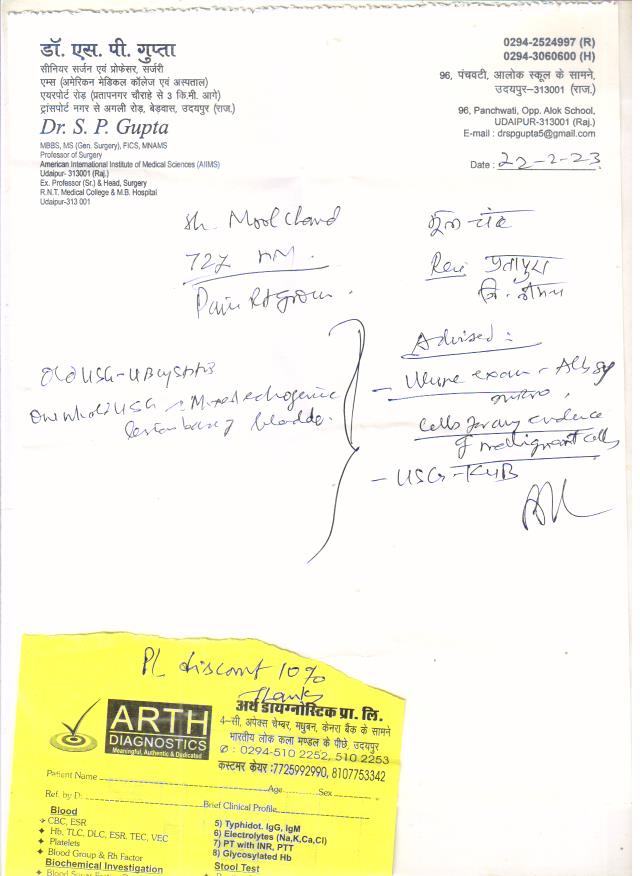 डॉ. एस. पी. गुप्ता
सीनियर सर्जन एवं प्रोफेसर, सर्जरी
एम्स (अमेरिकन मेडिकल कॉलेज एवं अस्पताल)
एयरपोर्ट रोड़ (प्रतापनगर चौराहे से 3 कि.मी. आगे)
ट्रांसपोर्ट नगर से अगली रोड़, बेड़वास, उदयपुर (राज.)
Dr. S. P. Gupta
MBBS, MS (Gen. Surgery), FICS, MNAMS
Professor of Surgery
American International Institute of Medical Sciences (AIIMS)
Udaipur- 313001 (Raj.)
Ex. Professor (Sr.) & Head, Surgery
R.N.T. Medical College & M.B. Hospital
Udaipur-313 001
0294-2524997 (R)
0294-3060600 (H)
96, पंचवटी, आलोक स्कूल के सामने,
उदयपुर-313001 (राज.)
96, Panchwati, Opp. Alok School,
UDAIPUR-313001 (Raj.)
E-mail : drspgupta5@gmail.com
Date : 22-2-23
Sh. Mool Chand
मूल चंद
72y
Pain Rt groin.
Old USG-UB cystitis
USG Mixed echogenic
lesion base of bladder.
Advised :
- Urine exam -
cells for any evidence
of malignant cells
- USG - KUB
Pl discount 10%
Thanks
ARTH
DIAGNOSTICS
Meaningful, Authentic & Dedicated
अर्थ डायग्नोस्टिक प्रा. लि.
4-सी, अपेक्स चेम्बर, मधुबन, केनरा बैंक के सामने
भारतीय लोक कला मण्डल के पीछे, उदयपुर
✆ : 0294-510 2252, 510 2253
कस्टमर केयर :7725992990, 8107753342
Patient Name Age Sex
Ref. by D: Brief Clinical Profile
Blood
CBC, ESR
Hb, TLC, DLC, ESR, TEC, VEC
Platelets
Blood Group & Rh Factor
Biochemical Investigation
5) Typhidot. IgG, IgM
6) Electrolytes (Na,K,Ca,Cl)
7) PT with INR, PTT
8) Glycosylated Hb
Stool Test